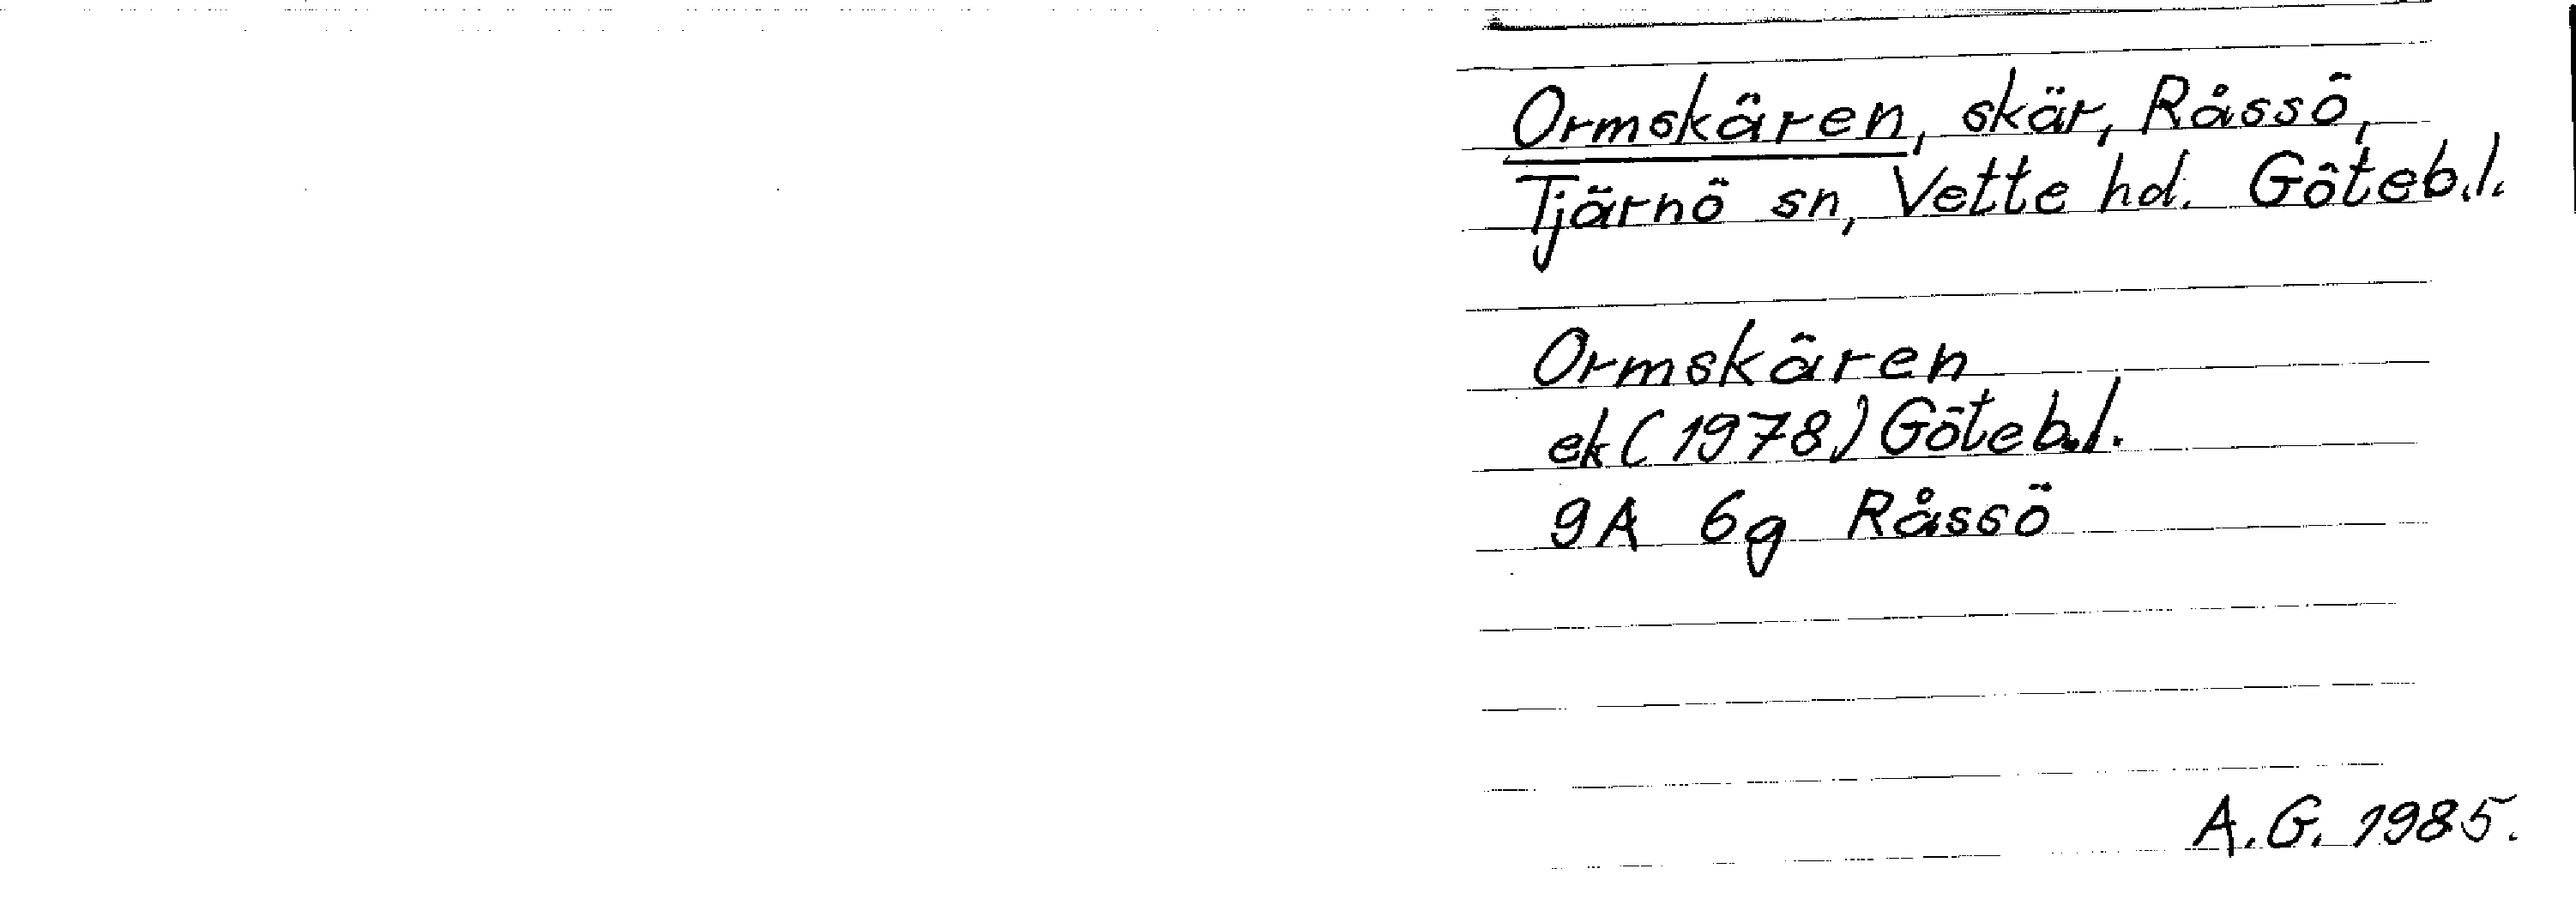 Ormskären, skär, Råssö,
Tjärnö sn, Vette hd. Göteb.l.
Ormskären
ek (1978) Göteb.l.
9A 6g Råssö
A.G. 1985.